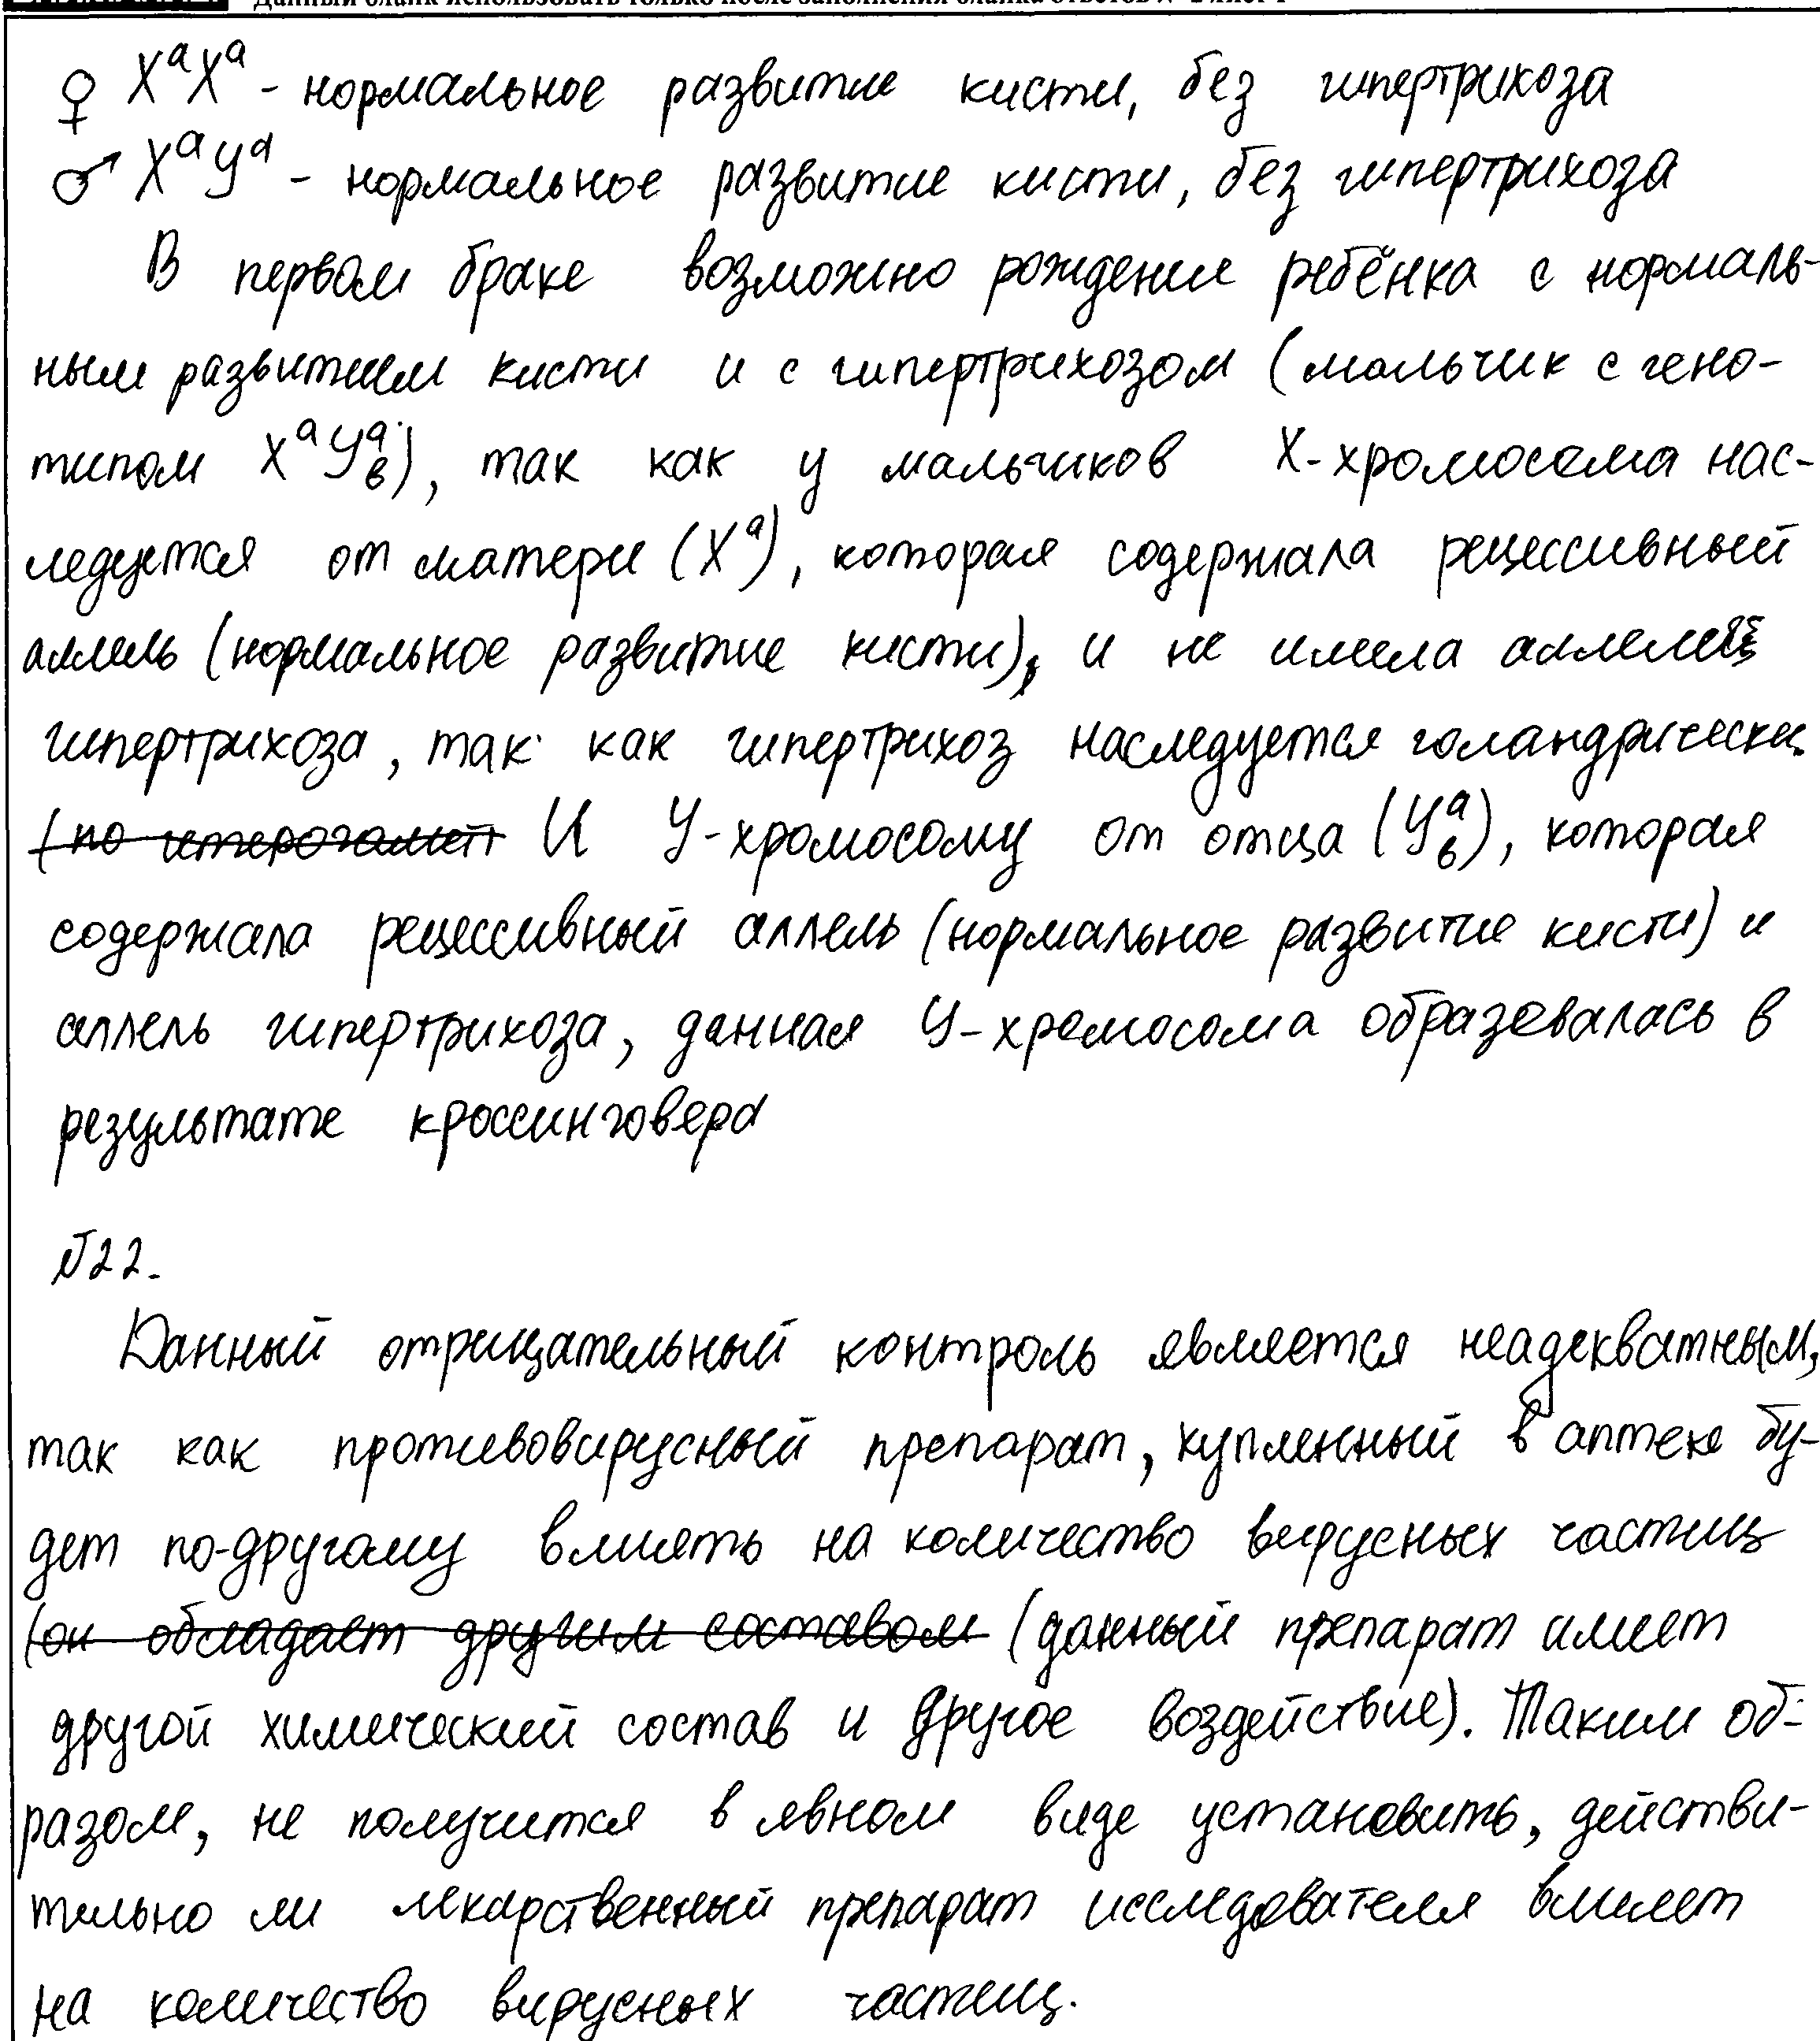 Данный бланк использовать только после заполнения бланка ответов № 2 лист 1
♀ XᵃXᵃ - нормальное развитие кисти, без гипертрихоза
♂ XᵃYᵃ - нормальное развитие кисти, без гипертрихоза
В первом браке возможно рождение ребёнка с нормаль-
ным развитием кисти и с гипертрихозом (мальчик с гено-
типом XᵃYᵃ_в), так как у мальчиков X-хромосома нас-
ледуется от матери (Xᵃ), которая содержала рецессивный
аллель (нормальное развитие кисти), и не имела аллелей
гипертрихоза, так как гипертрихоз наследуется голандрически.
(по гетерогамет И Y-хромосому от отца (Yᵃ_в), которая
содержала рецессивный аллель (нормальное развитие кисти) и
аллель гипертрихоза, данная Y-хромосома образовалась в
результате кроссинговера
№22.
Данный отрицательный контроль является неадекватным,
так как противовирусный препарат, купленный в аптеке бу-
дет по-другому влиять на количество вирусных частиц
(он обладает другим составом (данный препарат имеет
другой химический состав и другое воздействие). Таким об-
разом, не получится в явном виде установить, действи-
тельно ли лекарственный препарат исследователя влияет
на количество вирусных частиц.